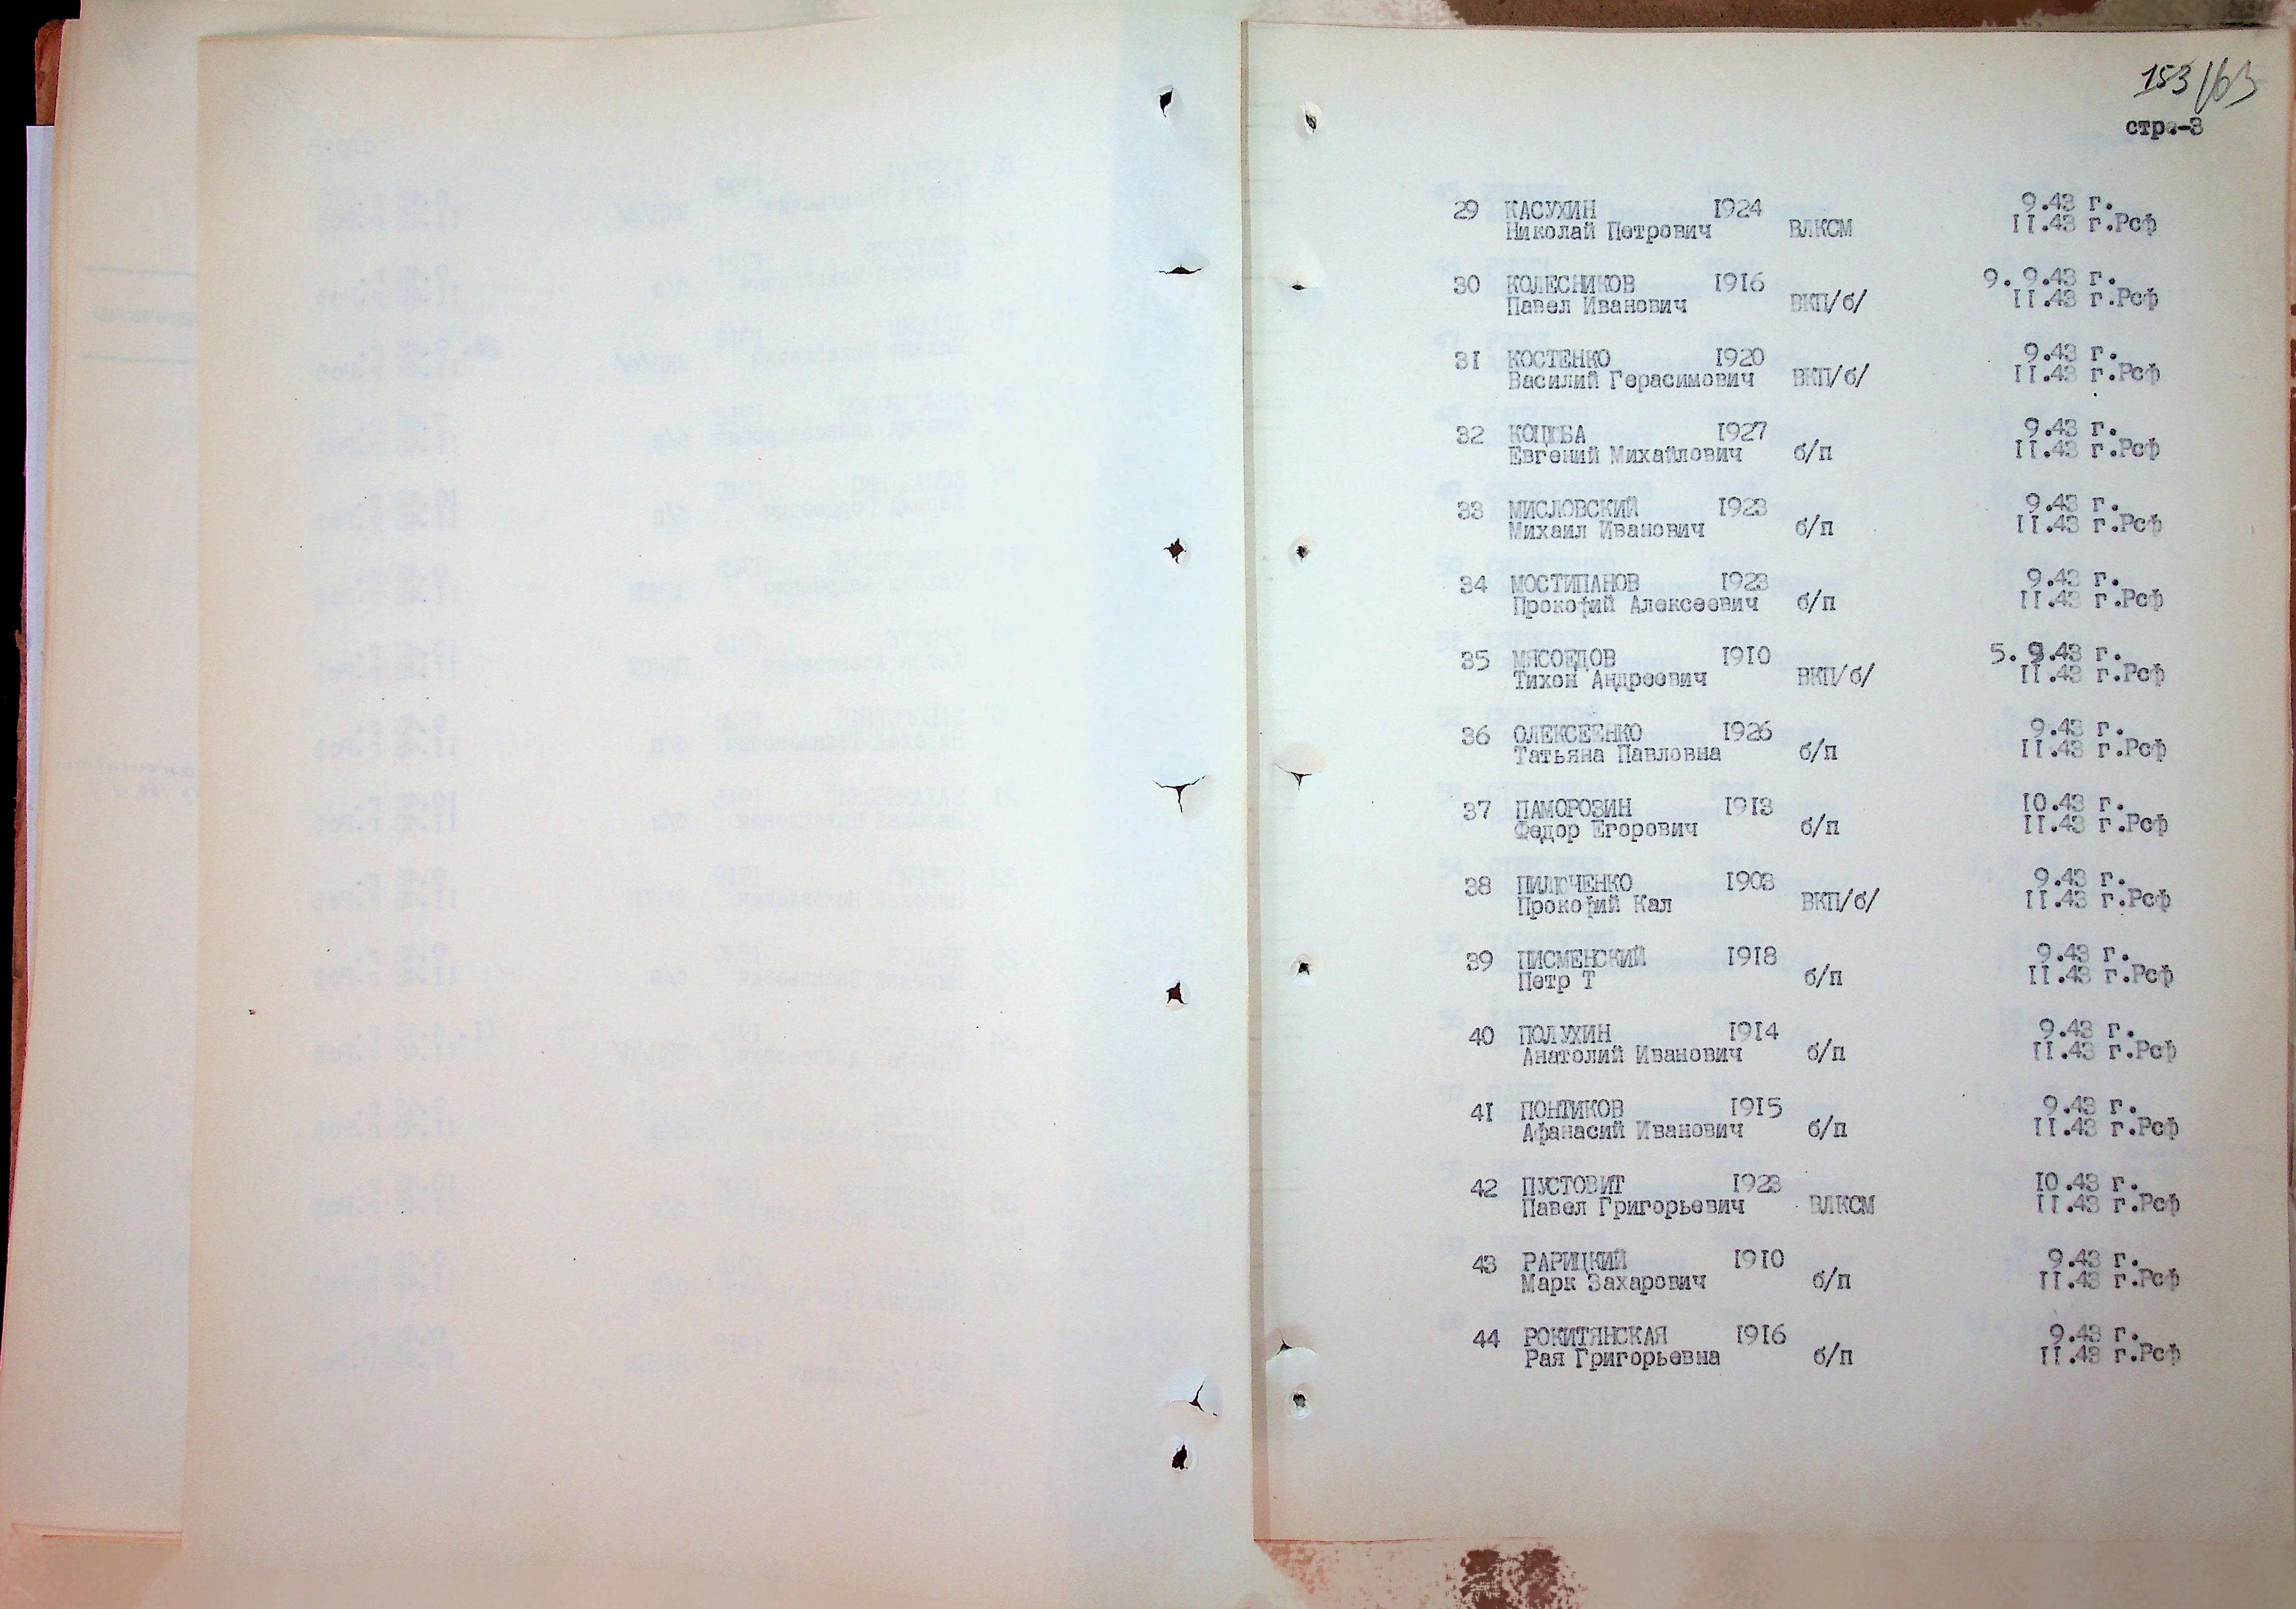 153/63
стр.-3
29 КАСУХИН 1924 9.43 г.
Николай Петрович ВЛКСМ II.43 г.Рсф
30 КОЛЕСНИКОВ 1916 9. 9.43 г.
Павел Иванович ВКП/б/ II.43 г.Рсф
31 КОСТЕНКО 1920 9.43 г.
Василий Герасимович ВКП/б/ II.43 г.Рсф
32 КОЦЮБА 1927 9.43 г.
Евгений Михайлович б/п II.43 г.Рсф
33 МИСЛОВСКИЙ 1923 9.43 г.
Михаил Иванович б/п II.43 г.Рсф
34 МОСТИПАНОВ 1923 9.43 г.
Прокофий Алексеевич б/п II.43 г.Рсф
35 МЯСОЕДОВ 1910 5. 9.43 г.
Тихон Андреевич ВКП/б/ II.43 г.Рсф
36 ОЛЕКСЕЕНКО 1926 9.43 г.
Татьяна Павловна б/п II.43 г.Рсф
37 ПАМОРОЗИН 1913 10.43 г.
Федор Егорович б/п II.43 г.Рсф
38 ПИЛЮЧЕНКО 1903 9.43 г.
Прокофий Кал ВКП/б/ II.43 г.Рсф
39 ПИСМЕНСКИЙ 1918 9.43 г.
Петр Т б/п II.43 г.Рсф
40 ПОЛУХИН 1914 9.43 г.
Анатолий Иванович б/п II.43 г.Рсф
41 ПОНТИКОВ 1915 9.43 г.
Афанасий Иванович б/п II.43 г.Рсф
42 ПУСТОВИТ 1923 10.43 г.
Павел Григорьевич ВЛКСМ II.43 г.Рсф
43 РАРИЦКИЙ 1910 9.43 г.
Марк Захарович б/п II.43 г.Рсф
44 РОКИТЯНСКАЯ 1916 9.43 г.
Рая Григорьевна б/п II.43 г.Рсф